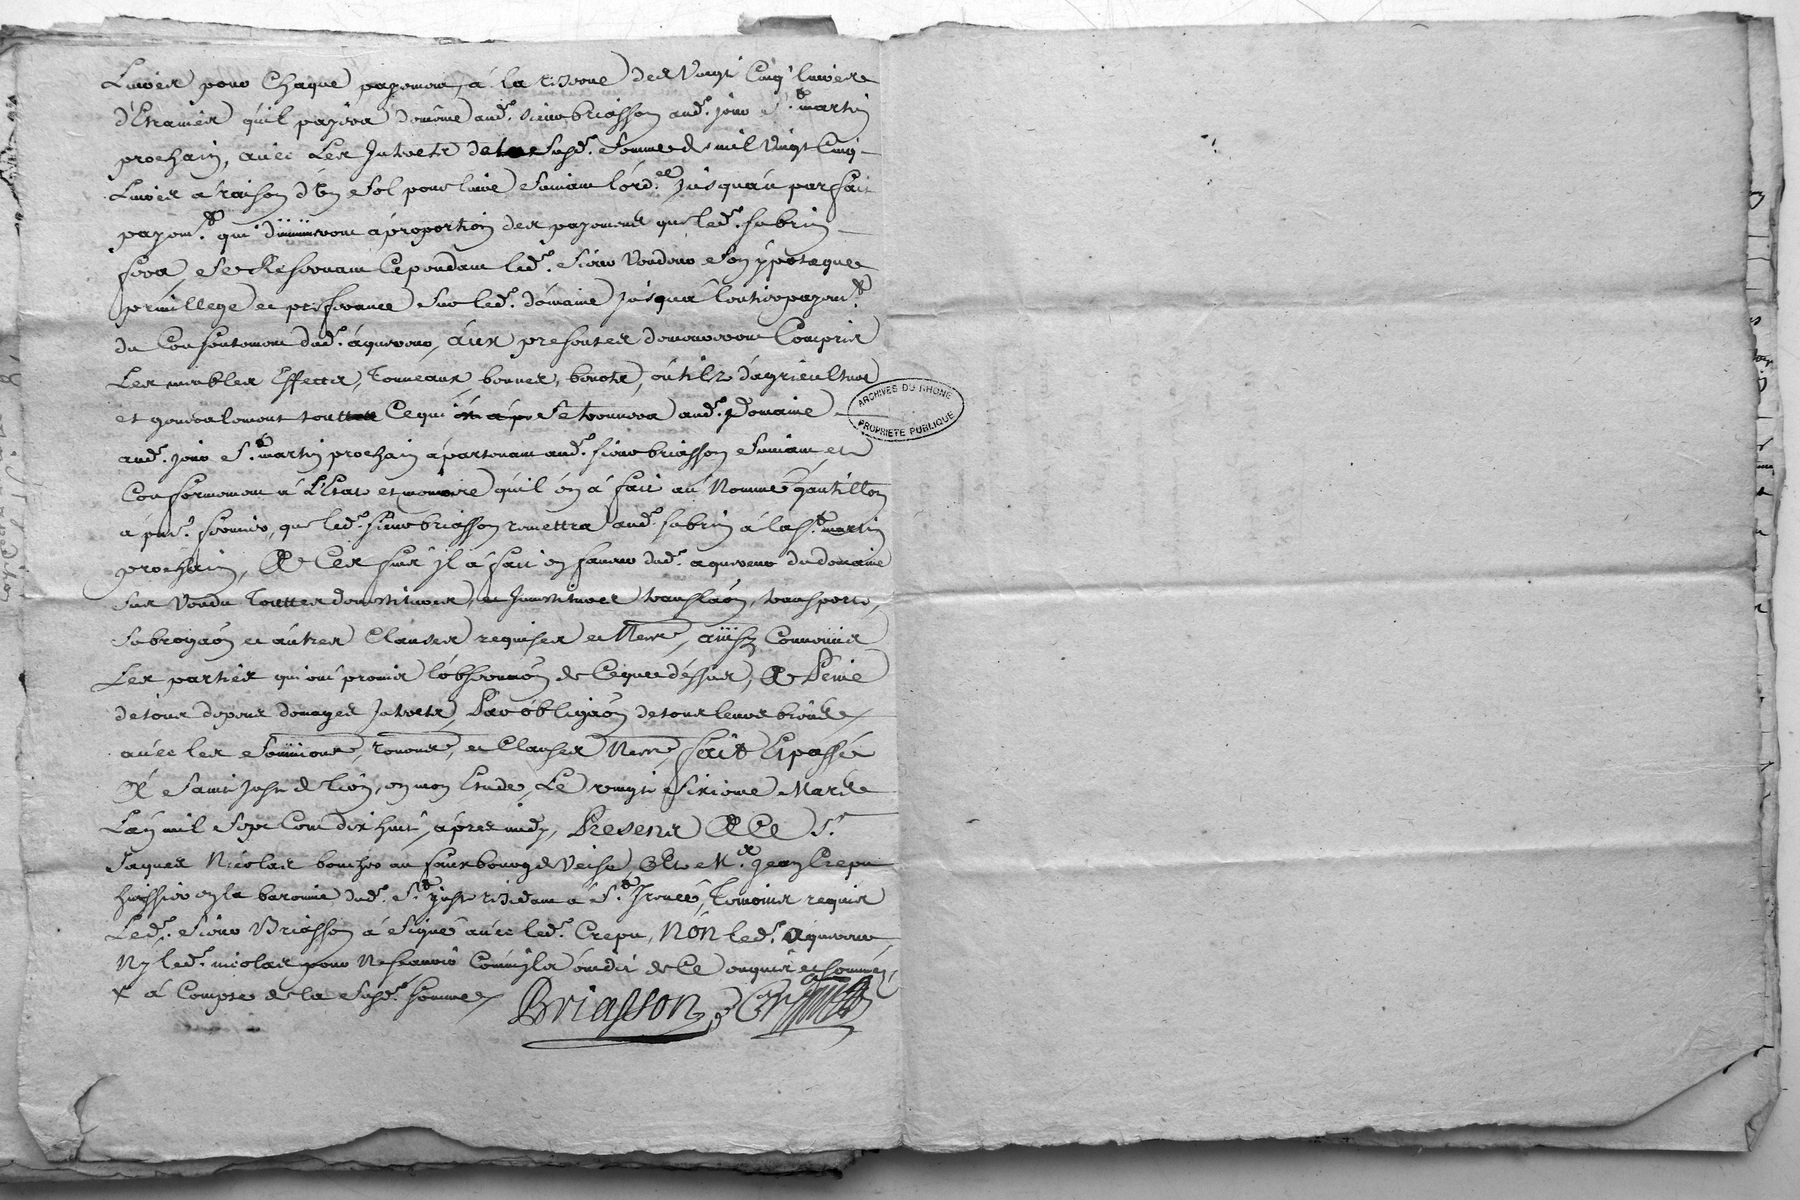 Livres pour chaque payement, à la réserve des vingt cinq livres
d'Etraines qu'il payera de même aud.t sieur briasson aud.t jour S.t martin
prochain, avec Les Interets de la susd.e somme de mil vingt cinq
Livres a raison d'un sol pour livre suivant l'ord.ce jusqu'au parfait
payem.t qui diminueront à proportion des payemens que led.t fabrin
fera, se Reservant Cependant led.t sieur vendeur son ypoteque
privillege et preferance sur led.t domaine jusqu'à l'entier payem.t
du Consentement dud.t aquereur, aux presentes demeureront Compris
Les meubles Effects, Tonneaux, bennes, benots, outilz d'agriculture
et generalement tout Ce qui se trouvera aud.t Domaine
aud.t jour S.t martin prochain apartenant aud.t sieur briasson suivant et
Conformement à L'Etat et memoire qu'il en a fait au Nommé gantillon
à pnt. fermier, que led.t sieur briasson remettra aud.t fabrin à la S.t martin
prochain, Et Ce il a fait en faveur dud.t aquereur du domaine
sus vendu Touttes devestitures, et Investitures translaõn, transports,
subrogaõn et autres Clauses requises et Ness.res, ainsy Convenues
Les parties qui ont promis l'observaõn de Ce que dessus, A Peine
de tous depens domages Interets, Par obligaõn de tous leurs biens
avec les soumîons, renons, et Clauses Ness.res, fait Et passé
A Saint Just de Lion, en mon Etude, Le vingt sixieme Mars
L'an mil sept Cent dix huit, apres midy, Presens A Ce S.r
Jaques Nicolas boucher au fauxbourg de Veise, Et M.e Jean Crepu
huissier en la baronie dud.t S.t Just residant à S.t Irenée, Temoins requis
Led.t sieur Briasson à signé avec led.t Crepu, NON led.t aquereur
Ny led.t nicolas pour Ne scavoir Comm'ils ont dit de Ce enquis et sommés,
x à Compte de la susd.e somme
Briasson Crepu
ARCHIVES DU RHONE
PROPRIÉTÉ PUBLIQUE